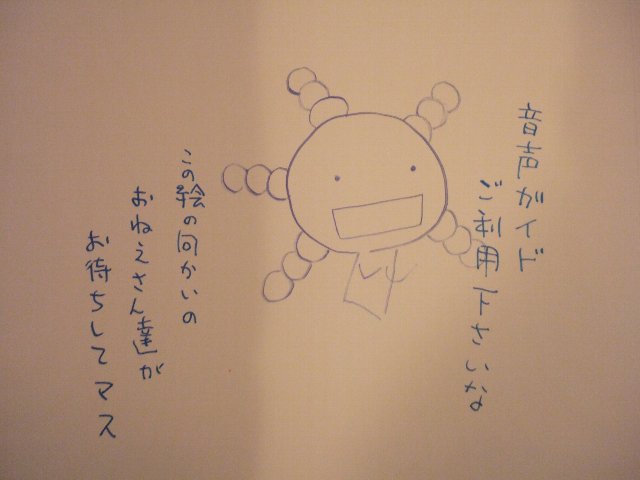 音声ガイド
ご利用下さいな
この絵の向かいの
おねえさん達が
お待ちしてマス